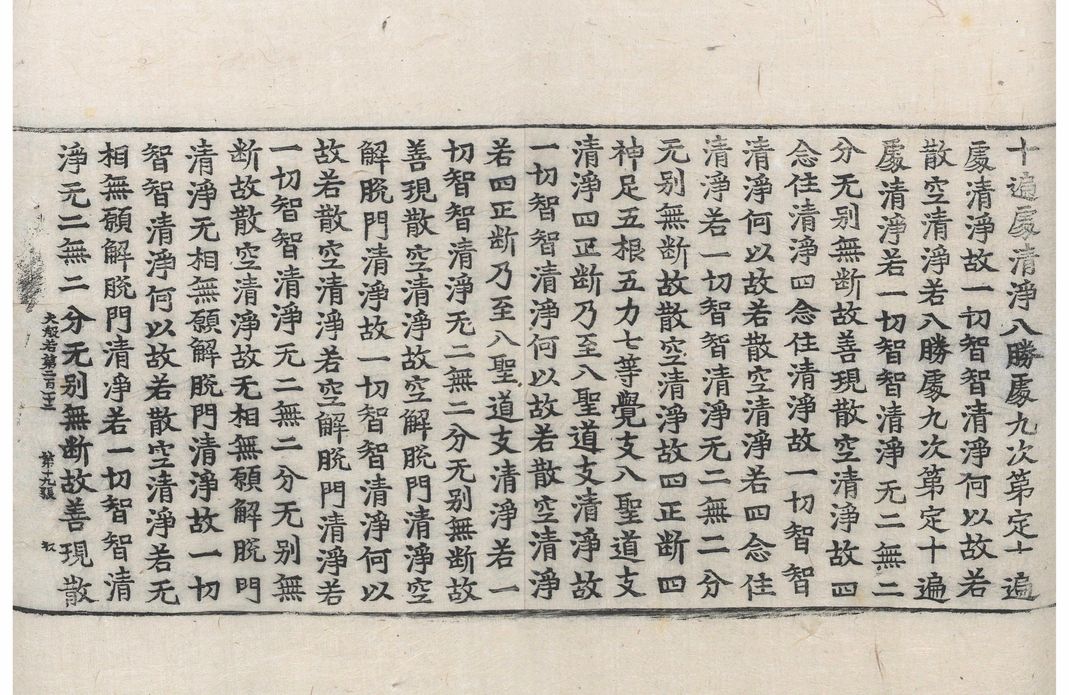 十遍處清淨八勝處九次第定十遍
處清淨故一切智智清淨何以故若
散空清淨若八勝處九次第定十遍
處清淨若一切智智清淨无二無二
分无别無断故善現散空清淨故四
念住清淨四念住清淨故一切智智
清淨何以故若散空清淨若四念住
清淨若一切智智清淨无二無二分
无别無断故散空清淨故四正断四
神足五根五力七等覺支八聖道支
清淨四正断乃至八聖道支清淨故
一切智智清淨何以故若散空清淨
若四正断乃至八聖道支清淨若一
切智智清淨无二無二分无别無断故
善現散空清淨故空解脫門清淨空
解脫門清淨故一切智智清淨何以
故若散空清淨若空解脫門清淨若
一切智智清淨无二無二分无别無
断故散空清淨故无相無願解脫門
清淨无相無願解脫門清淨故一切
智智清淨何以故若散空清淨若无
相無願解脫門清淨若一切智智清
淨无二無二分无别無断故善現散
大般若第二百 第十九張